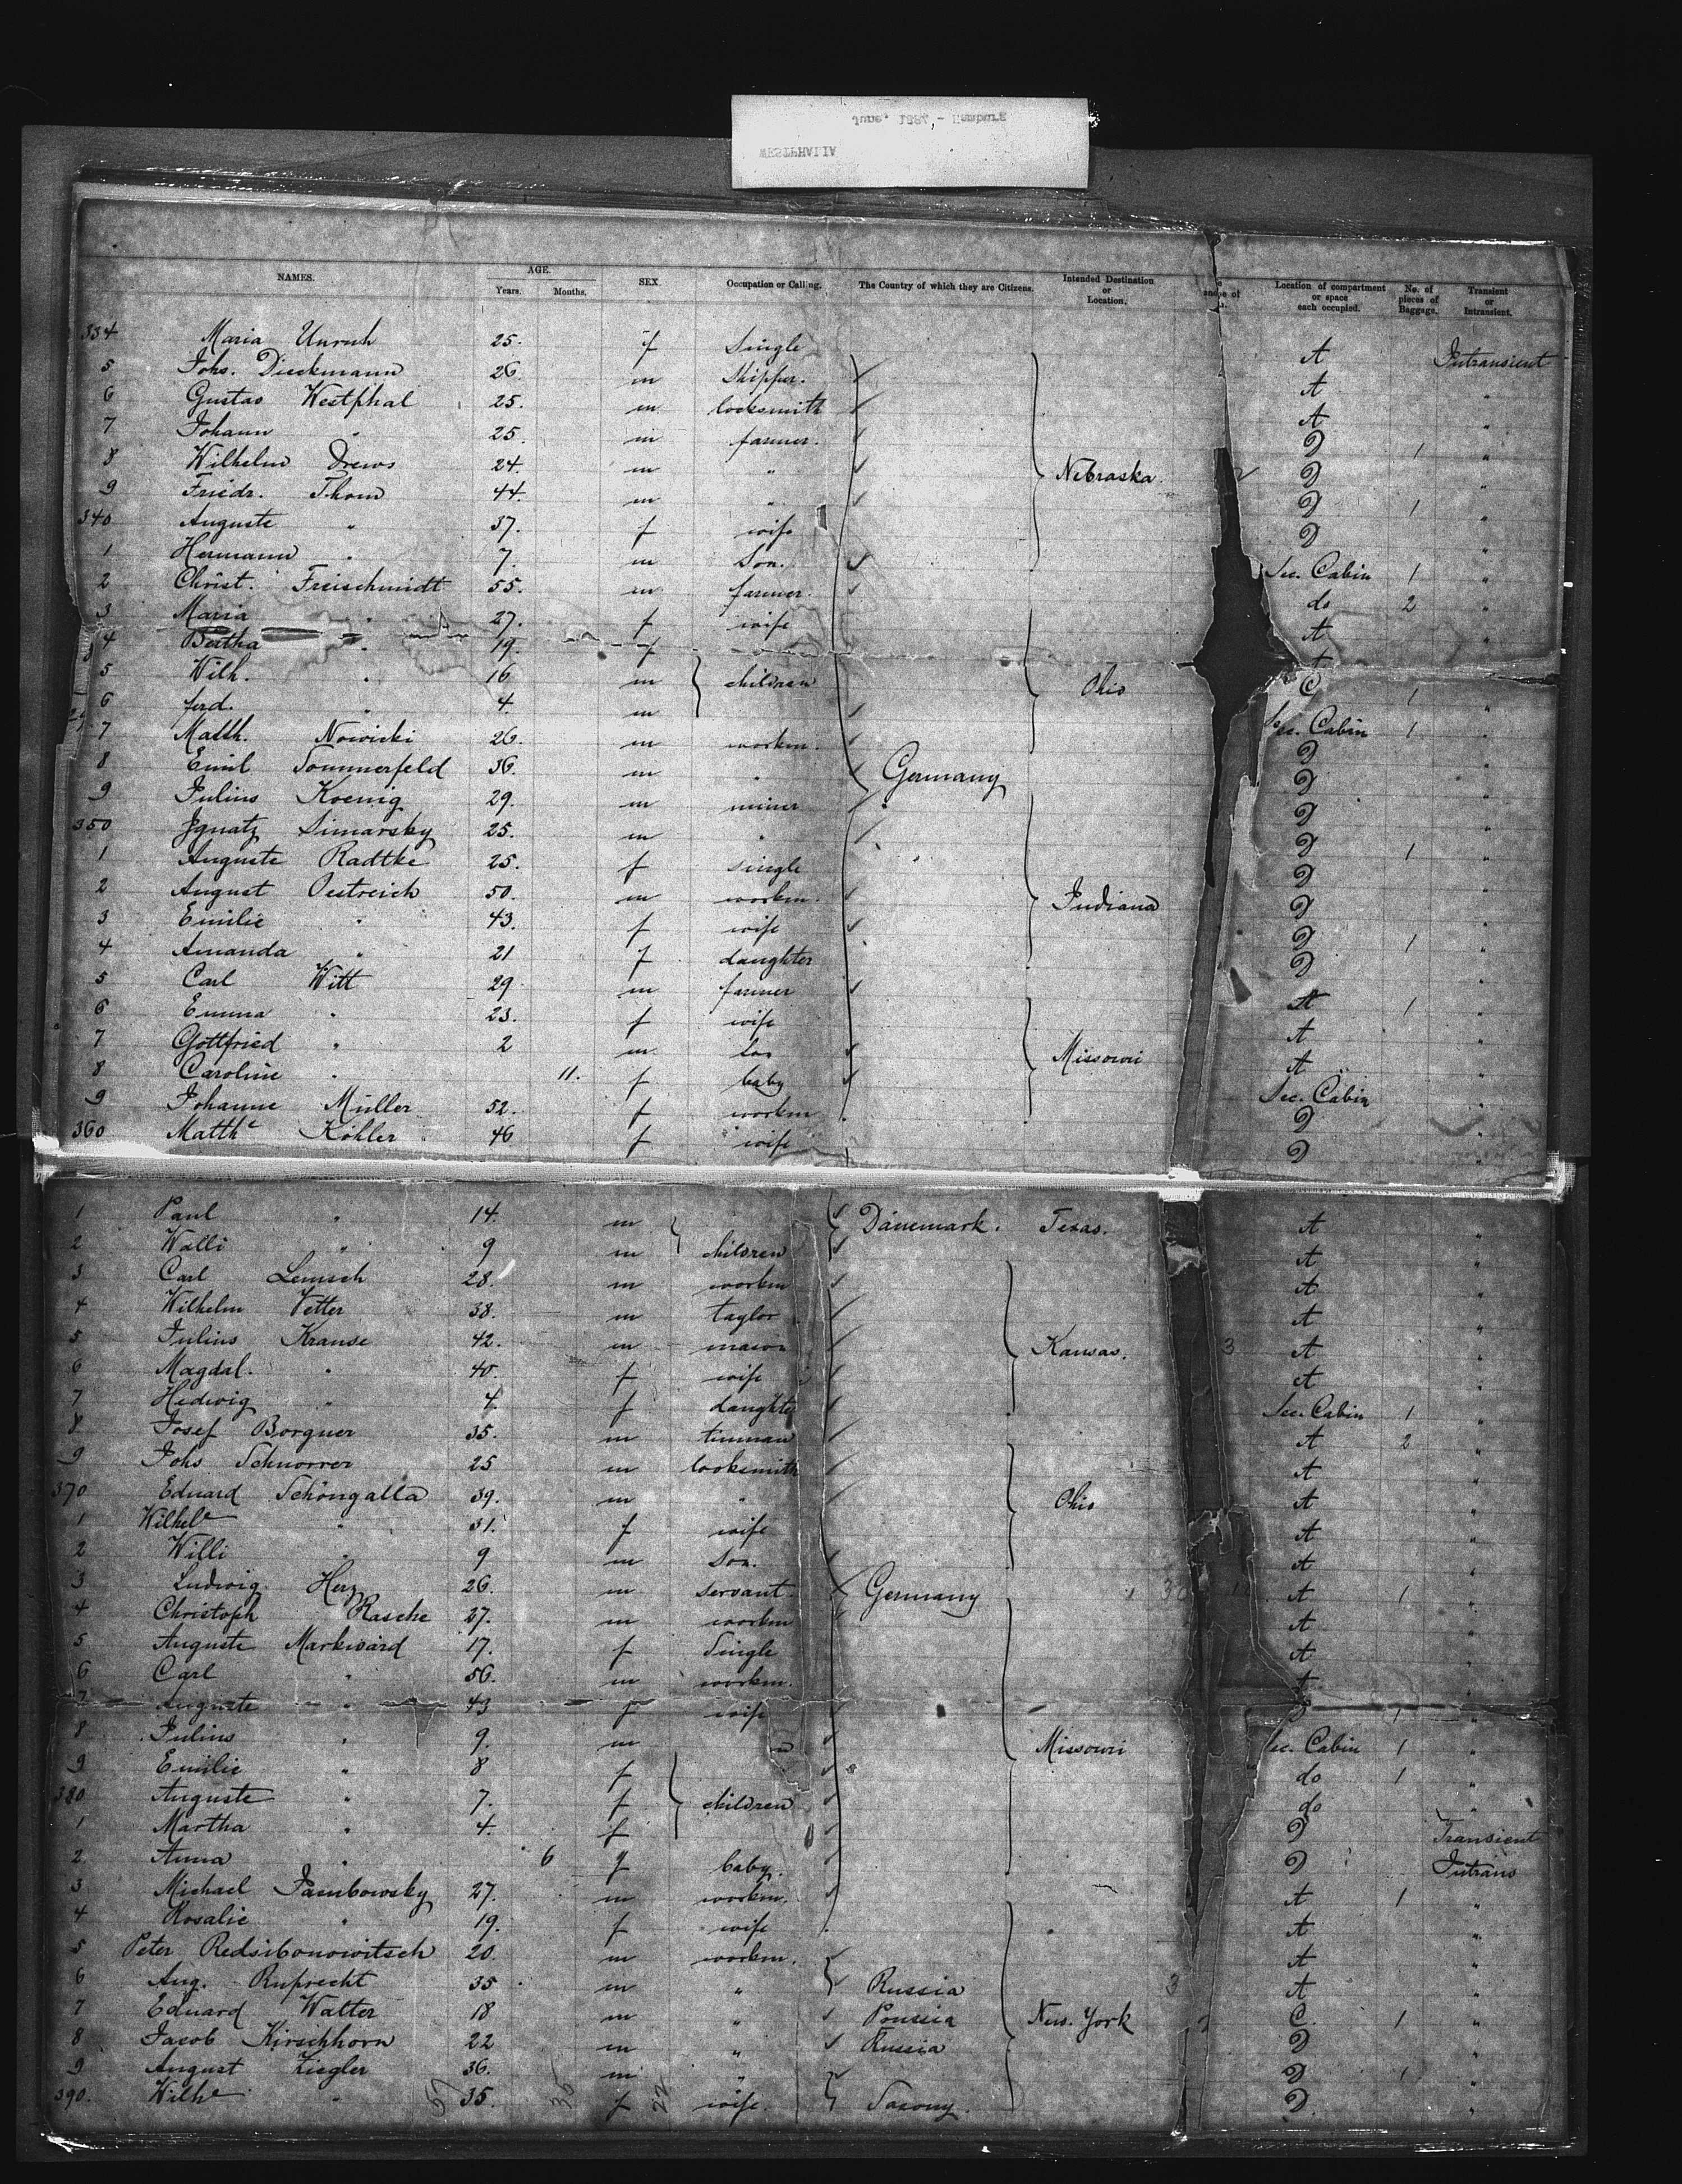 June 1887, - Hamburg
WESTPHALIA
NAMES. AGE. Years. Months. SEX. Occupation or Calling. The Country of which they are Citizens. Intended Destination or Location. Location of compartment or space each occupied. No. of pieces of Baggage. Transient or Intransient.
334 Maria Unruh 25. f Single A Intransient
5 Johs. Dieckmann 26. m Skipper. A "
6 Gustav Westphal 25. m locksmith A "
7 Johann " 25. m farmer. D 1 "
8 Wilhelm Drews 24. m " Nebraska. D "
9 Friedr. Thom 44. m " D 1 "
340 Auguste " 37. f wife D "
1 Hermann " 7. m Son. Sec. Cabin 1 "
2 Christ. Freischmidt 55. m farmer. do 2 "
3 Maria " 27. f wife A "
4 Bertha " 19. f
5 Wilh. " 16 m children Ohio C 1 "
6 ferd. " 4. m Sec. Cabin 1 "
7 Matth. Nowicki 26. m workm. D "
8 Emil Sommerfeld 36. m " Germany D "
9 Julius Koenig 29. m miner D "
350 Ignatz Simarsky 25. m " D 1 "
1 Auguste Radtke 25. f single D "
2 August Oestreich 50. m workm. Indiana D "
3 Emilie " 43. f wife D 1 "
4 Amanda " 21 f daughter D "
5 Carl Witt 29 m farmer A 1 "
6 Emma " 23. f wife A "
7 Gottfried " 2 m Son Missouri A "
8 Caroline " 11. f baby Sec. Cabin "
9 Johanne Müller 52. f workm D "
360 Matthe Köhler 46 f wife D "
1 Paul " 14. m Dänemark. Texas. A "
2 Walli " 9 m children A "
3 Carl Lemsch 28. m workm A "
4 Wilhelm Vetter 38. m taylor A "
5 Julius Krause 42. m mason Kansas. 3 A "
6 Magdal. " 40. f wife A "
7 Hedwig " 4. f daughter Sec. Cabin 1 "
8 Josef Borgner 35. m tinman A 2 "
9 Johs Schnorrer 25 m locksmith A "
370 Eduard Schöngalla 39. m " Ohio A "
1 Wilhele " 31. f wife A "
2 Willi " 9 m Son. A "
3 Ludwig Herz 26. m servant. Germany A 1 "
4 Christoph Rasche 27. m workm A "
5 Auguste Markward 17. f Single A "
6 Carl " 56. m workm. A "
7 Auguste " 43 f wife 1 "
8 Julius " 9. m Missouri Sec. Cabin 1 "
9 Emilie " 8 f do 1 "
380 Auguste " 7. f children do "
1 Martha " 4. f D Transient
2. Anna " 6 f baby. D Intrans
3 Michael Jambowsky 27. m workm. A 1 "
4 Rosalie " 19. f wife A "
5 Peter Redsibonowitsch 20. m workm. A "
6 Aug. Ruprecht 35 m " Russia 3 A "
7 Eduard Walter 18 m " Prussia New. York C. 1 "
8 Jacob Kirschhorn 22 m " Russia D "
9 August Ziegler 36. m " D 1 "
390. Wilhe " 35. f wife. Saxony. D. "